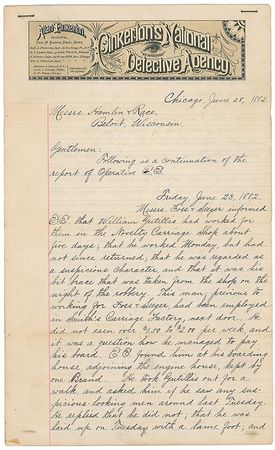 Allan Pinkerton,
Pinkerton's National
Detective Agency.
Chicago, June 28, 1882.
Messrs. Hamlin & Race,
Beloit, Wisconsin.
Gentlemen:
Following is a continuation of the
report of Operative E.E.
Friday June 23, 1882.
Messrs Foss & Steger informed
E.E. that William Gutillis had worked for
them in the Novelty Carriage Shop about
five days; that he worked Monday, but had
not since returned; that he was regarded as
a suspicious character, and that it was his
bit brace that was taken from the shop on the
night of the robbery. This man, previous to
working for Foss & Steger, had been employed
in Smith's Carriage Factory, next door. He
did not earn over $1.00 to $2.00 per week, and
it was a question how he managed to pay
his board. E.E. found him at his boarding
house, adjoining the engine house, kept by
one Brand. He took Gutillis out for a
walk, and asked him if he saw any sus-
picious-looking men around last Tuesday.
He replied that he did not; that he was
laid up on Tuesday with a lame foot; and